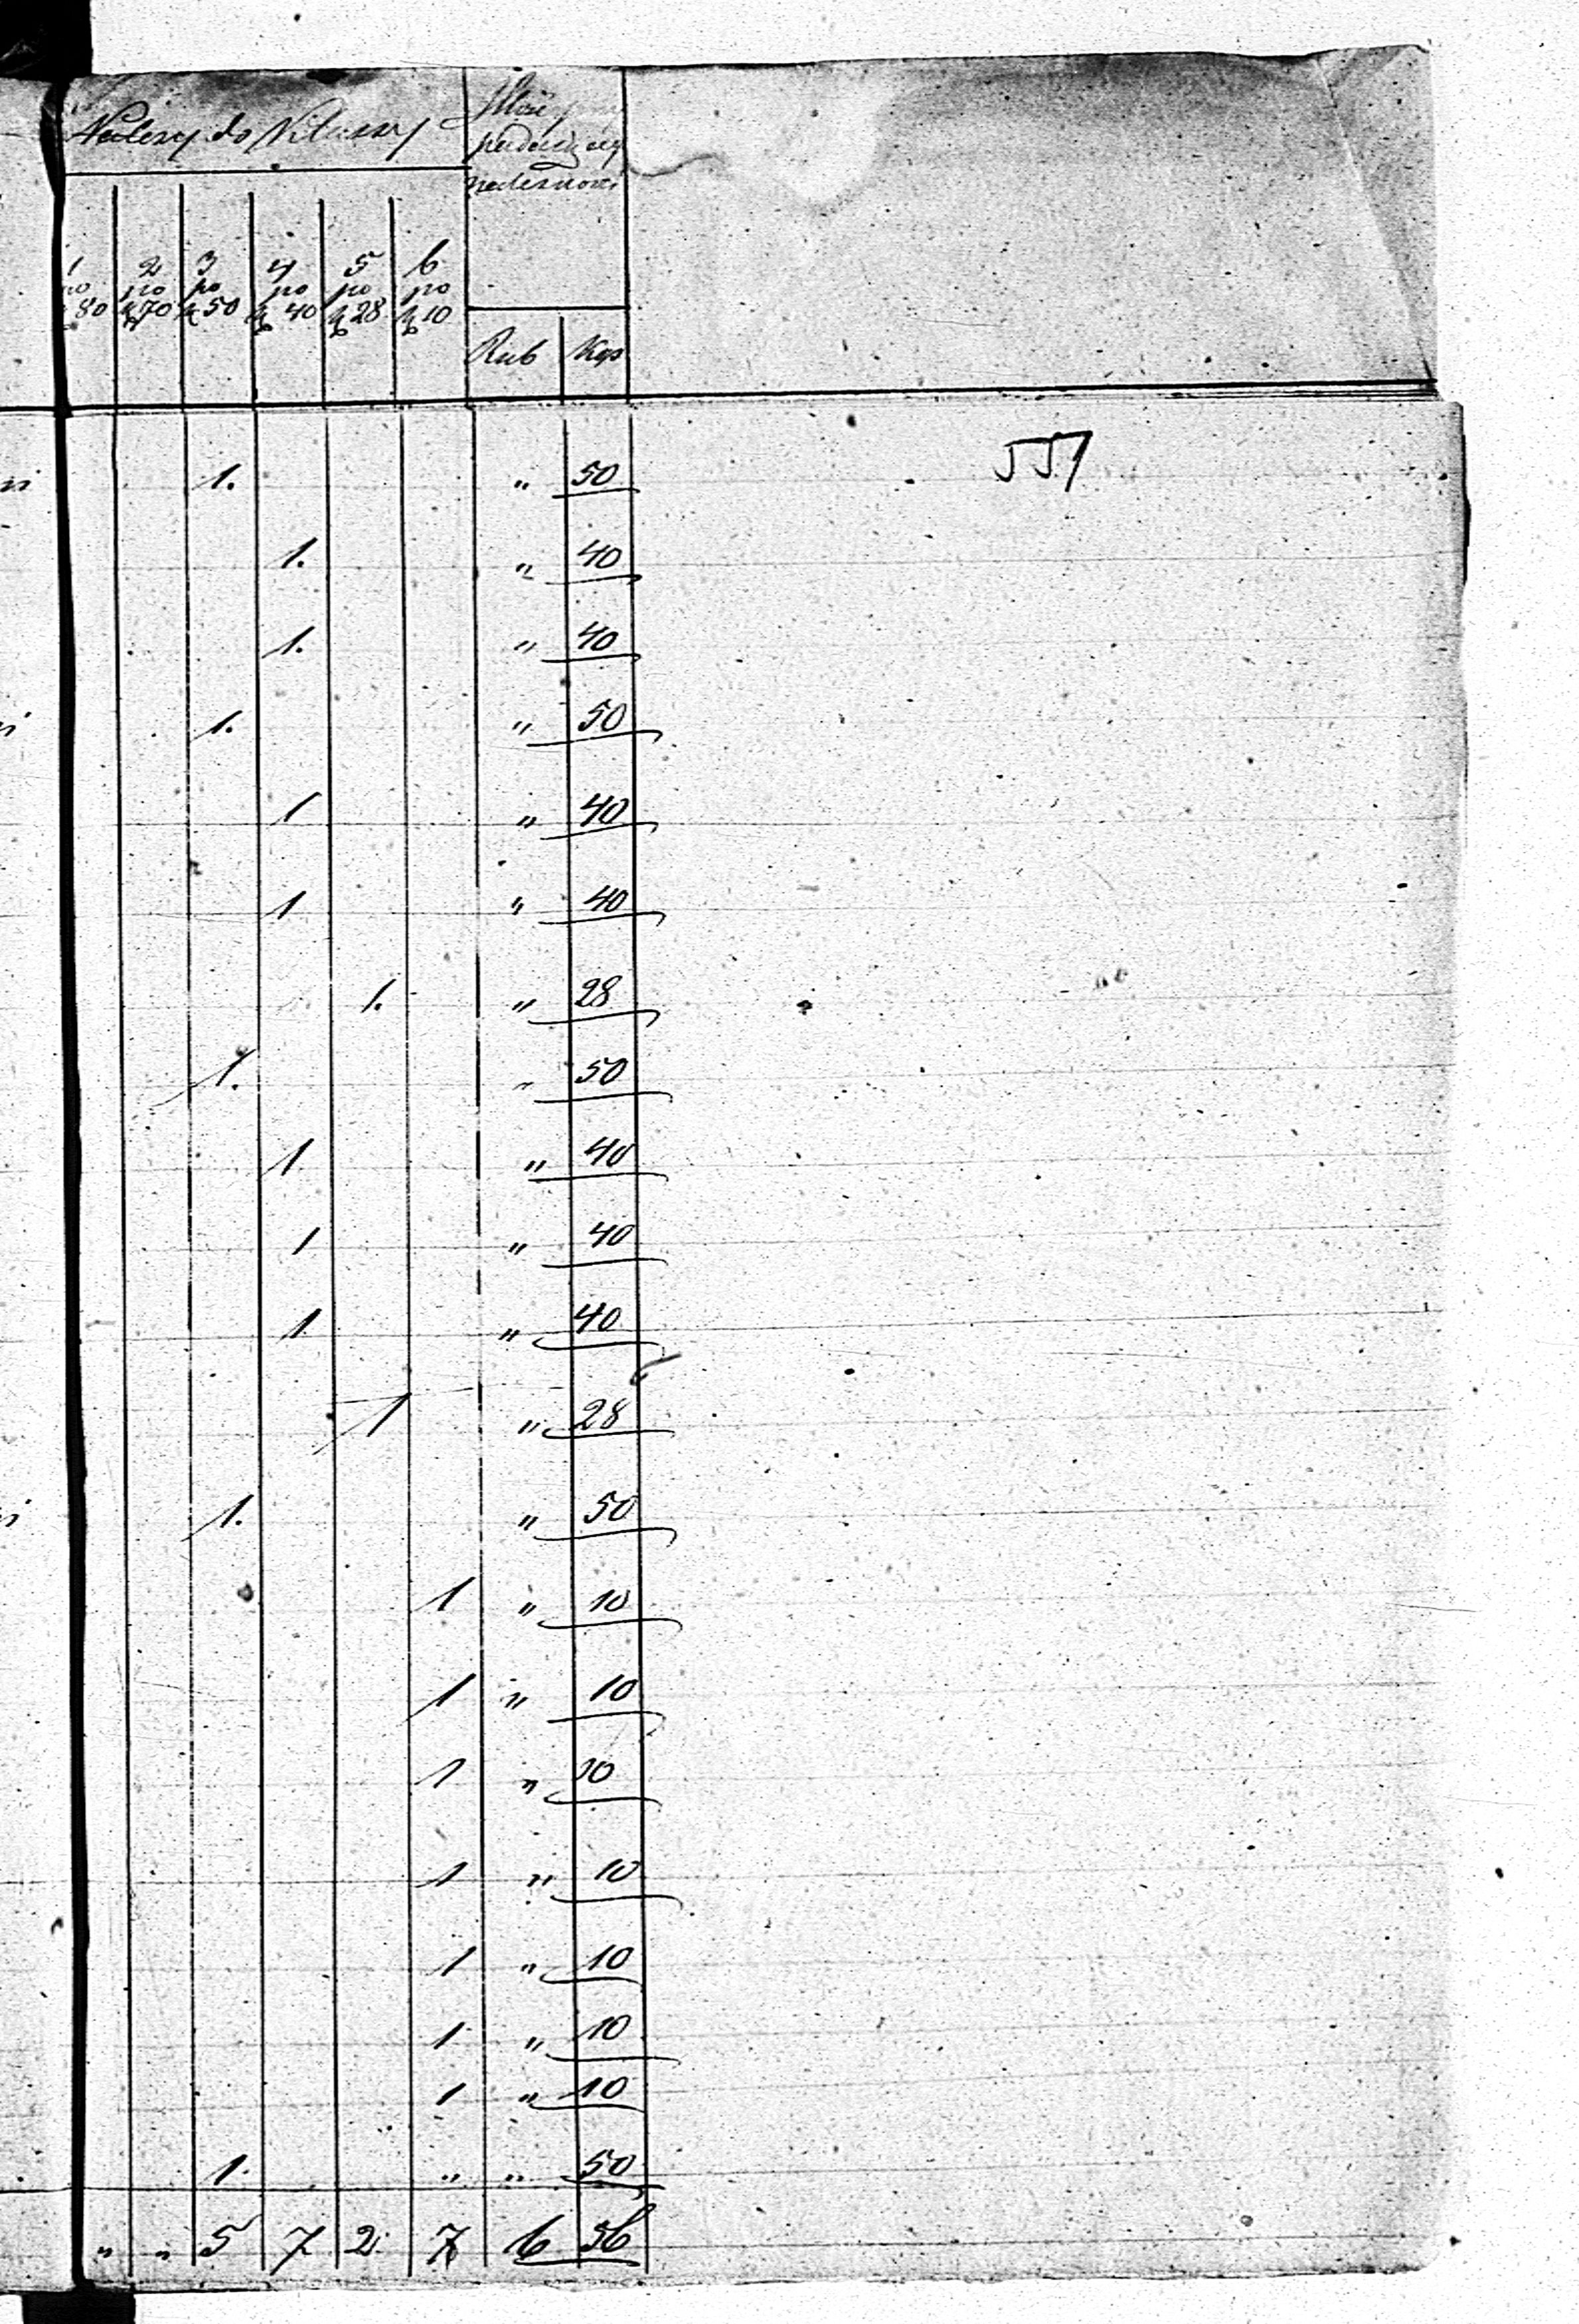 Należy do Klassy
1 2 3 4 5 6
po po po po po po
80 k 70 k 50 k 40 k 28 k 10
Rub Kop
557
1. " 50
1. " 40
1. " 40
1. " 50
1 " 40
1 " 40
1. " 28
1. " 50
1 " 40
1 " 40
1 " 40
1 " 28
1. " 50
1 " 10
1 " 10
1 " 10
1 " 10
1 " 10
1 " 10
1 " 10
1. " " 50
" " 5 7 2 7 6 56